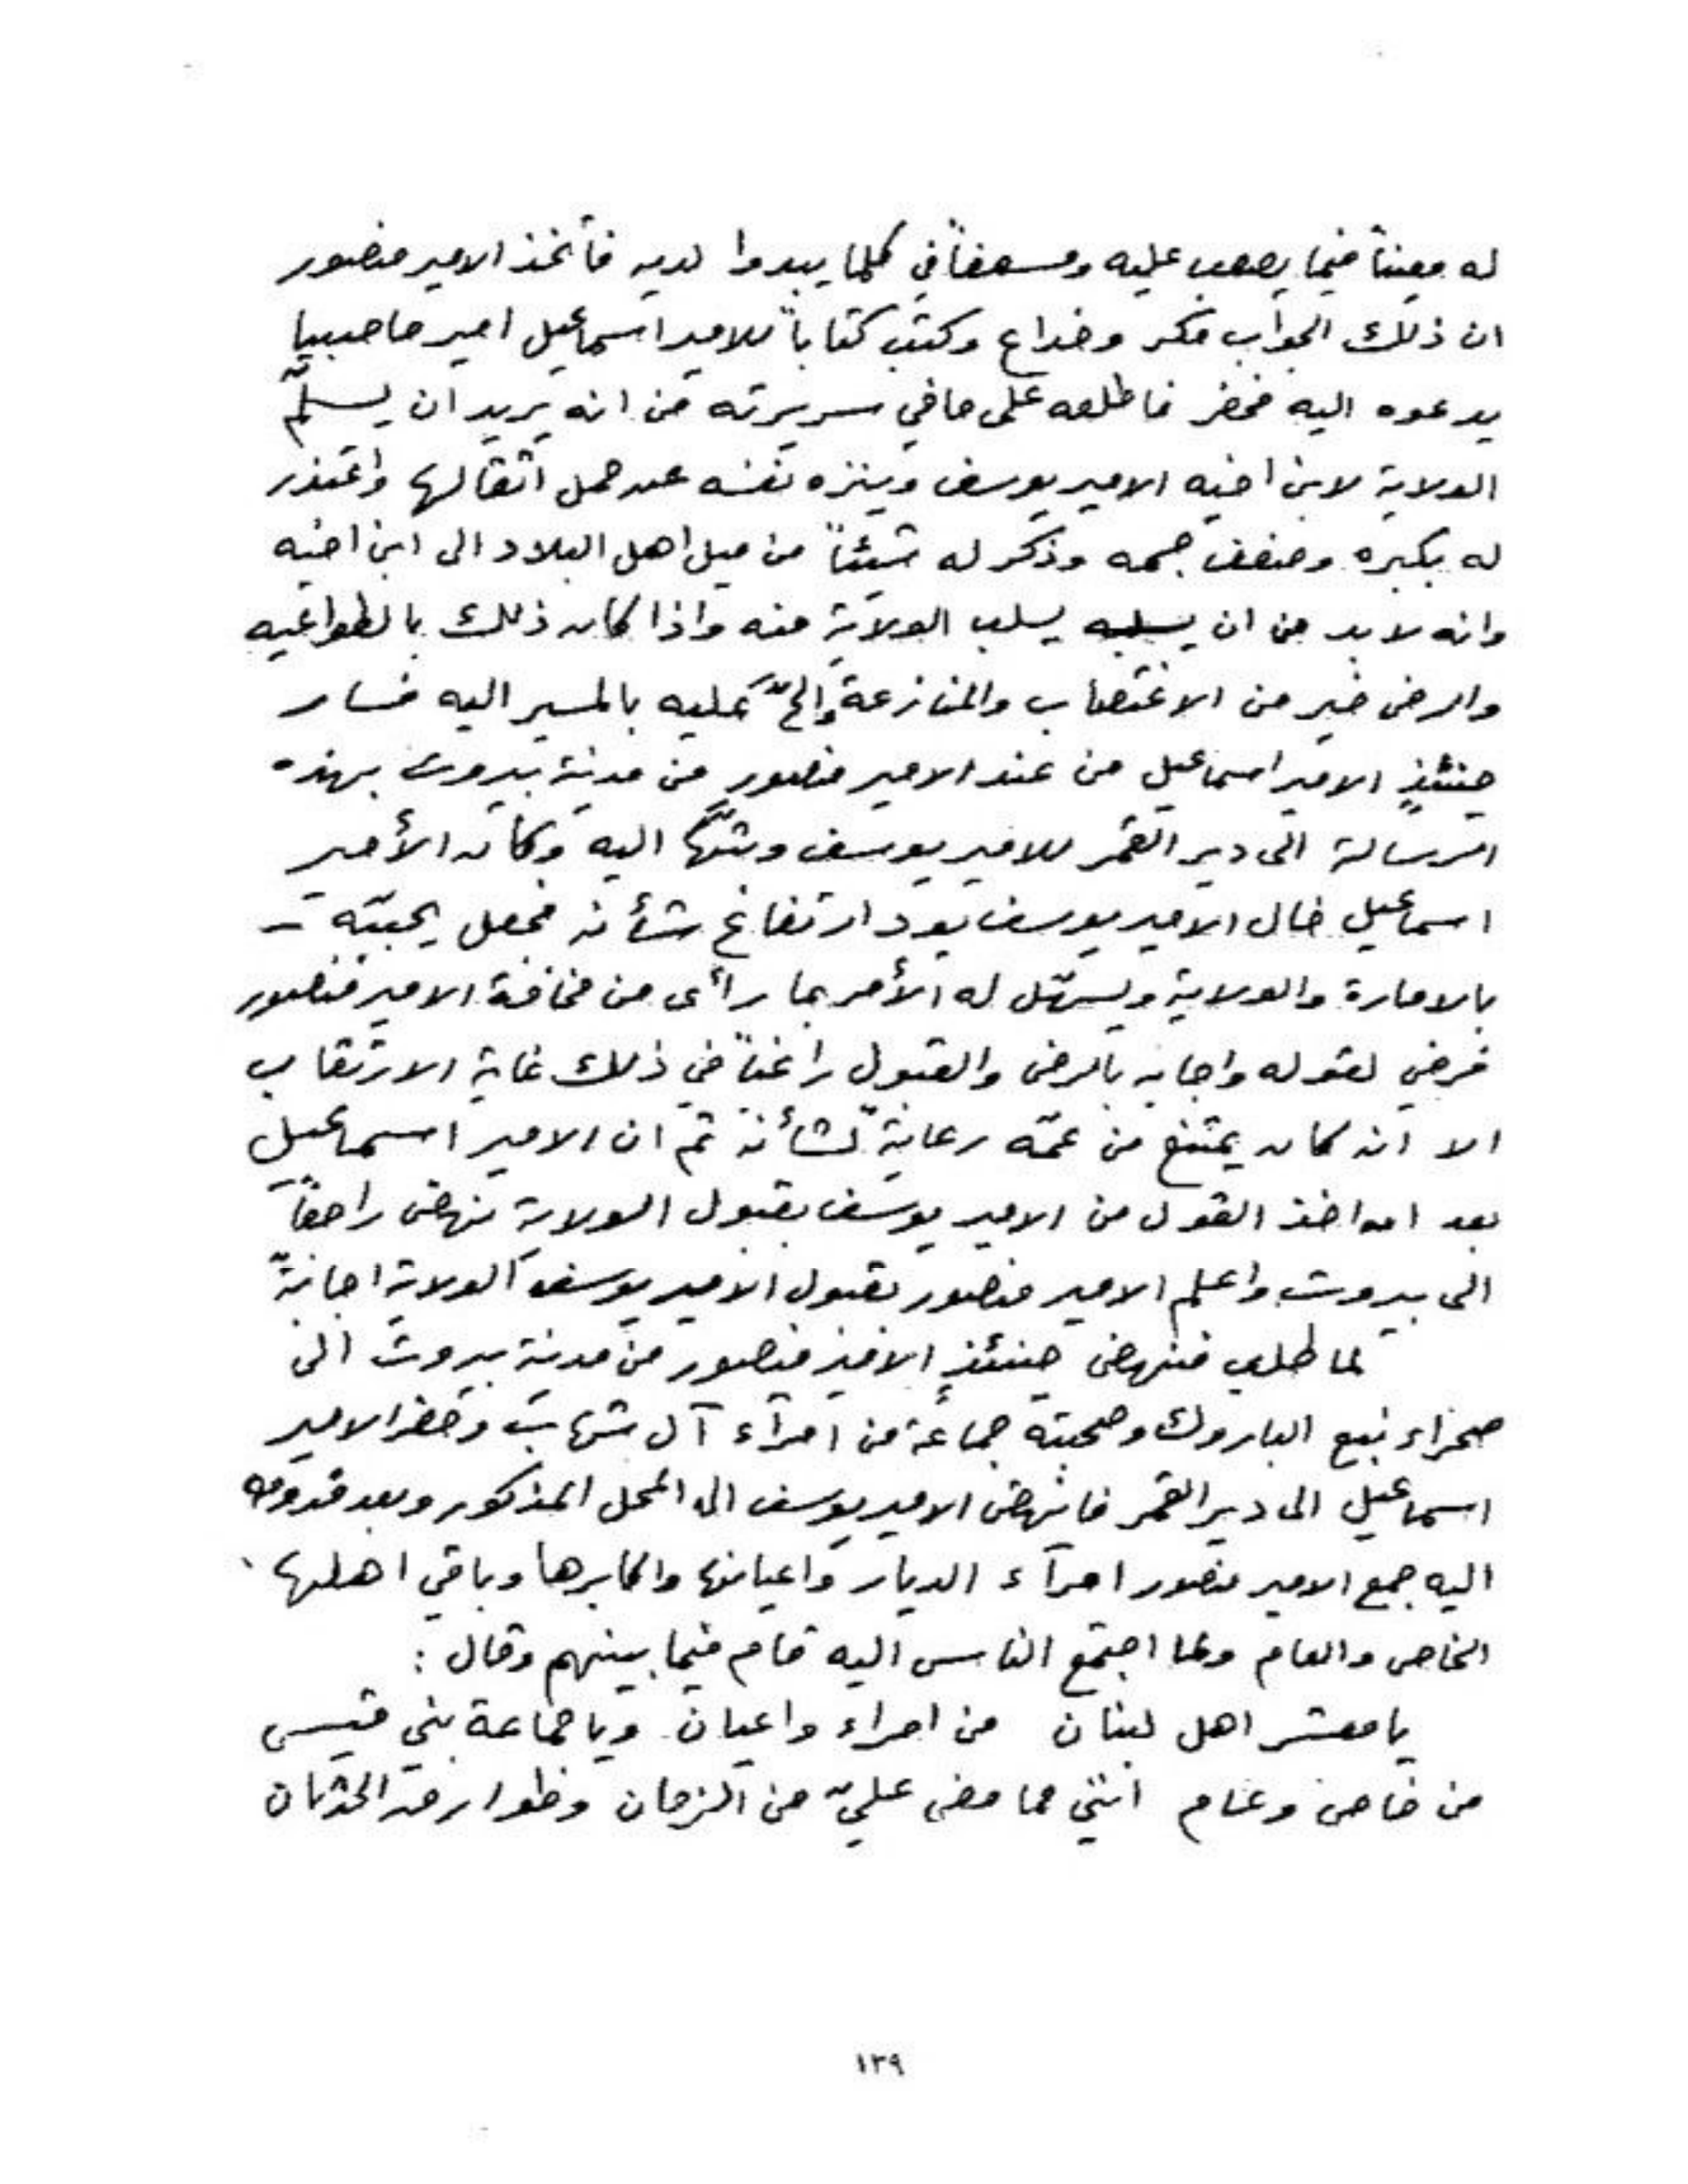 له معيناً فيما يصعب عليه ومسعفاً في كلما يبدوا لديه فأتخذ الامير منصور
ان ذلك الجواب مكر وخداع وكتب كتاباً للامير اسماعيل امير حاصبيا
يدعوه اليه فحضر فاطلعه على مافي سريرته من انه يريد ان يسلّم
الولاية لابن اخيه الامير يوسف وينزه نفسه عن حمل اثقالها واعتذر
له بكبره وضعف جسمه وذكر له شيئاً من ميل اهل البلاد الى ابن اخيه
وانه لا بد من ان يسلب الولاية منه واذا كان ذلك بالطواعيه
والرضى خير من الاغتصاب والمنازعة والحّ عليه بالمسير اليه فسار
حينئذٍ الامير اسماعيل من عند الامير منصور من مدينة بيروت بهذه
الرسالة الى دير القمر للامير يوسف وبثّها اليه وكان الأمير
اسماعيل خال الامير يوسف يود ارتفاع شأنه فجعل يحببّه
بالامارة والولاية ويسهّل له الأمر بما رأى من مخافة الامير منصور
فرضي لقوله واجابه بالرضى والقبول راغباً في ذلك غاية الارتقاب
الا انه كان يمتنع من عمّه رعايةً لشأنه ثم ان الامير اسماعيل
بعد ان اخذ القول من الامير يوسف بقبول الولاية نهض راجعاً
الى بيروت واعلم الامير منصور بقبول الامير يوسف الولاية اجابةً
لما طلب فنهض حينئذٍ الامير منصور من مدينة بيروت الى
صحراء نبع الباروك وصحبته جماعة من امرآء آل شهاب وحضر الامير
اسماعيل الى دير القمر فانهض الامير يوسف الى المحل المذكور وبعد قدومه
اليه جمع الامير منصور امرآء الديار واعيانها واكابرها وباقي اهلها
الخاص والعام ولما اجتمع الناس اليه قام فيما بينهم وقال :
يا معشر اهل لبنان من امراء واعيان ويا جماعة بني قيسى
من خاص وعام انني مما مضى عليّ من الزمان وطوارق الحدثان
١٣٩